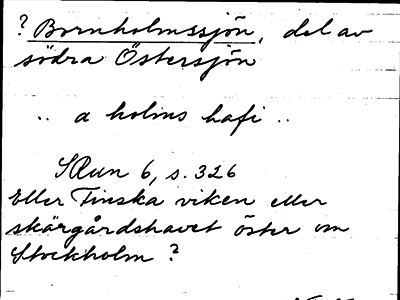 ? Bornholmssjön, del av
södra Östersjön
.. a holms hafi ..
SRun 6, s. 326
Eller Finska viken eller
skärgårdshavet öster om
Stockholm ?